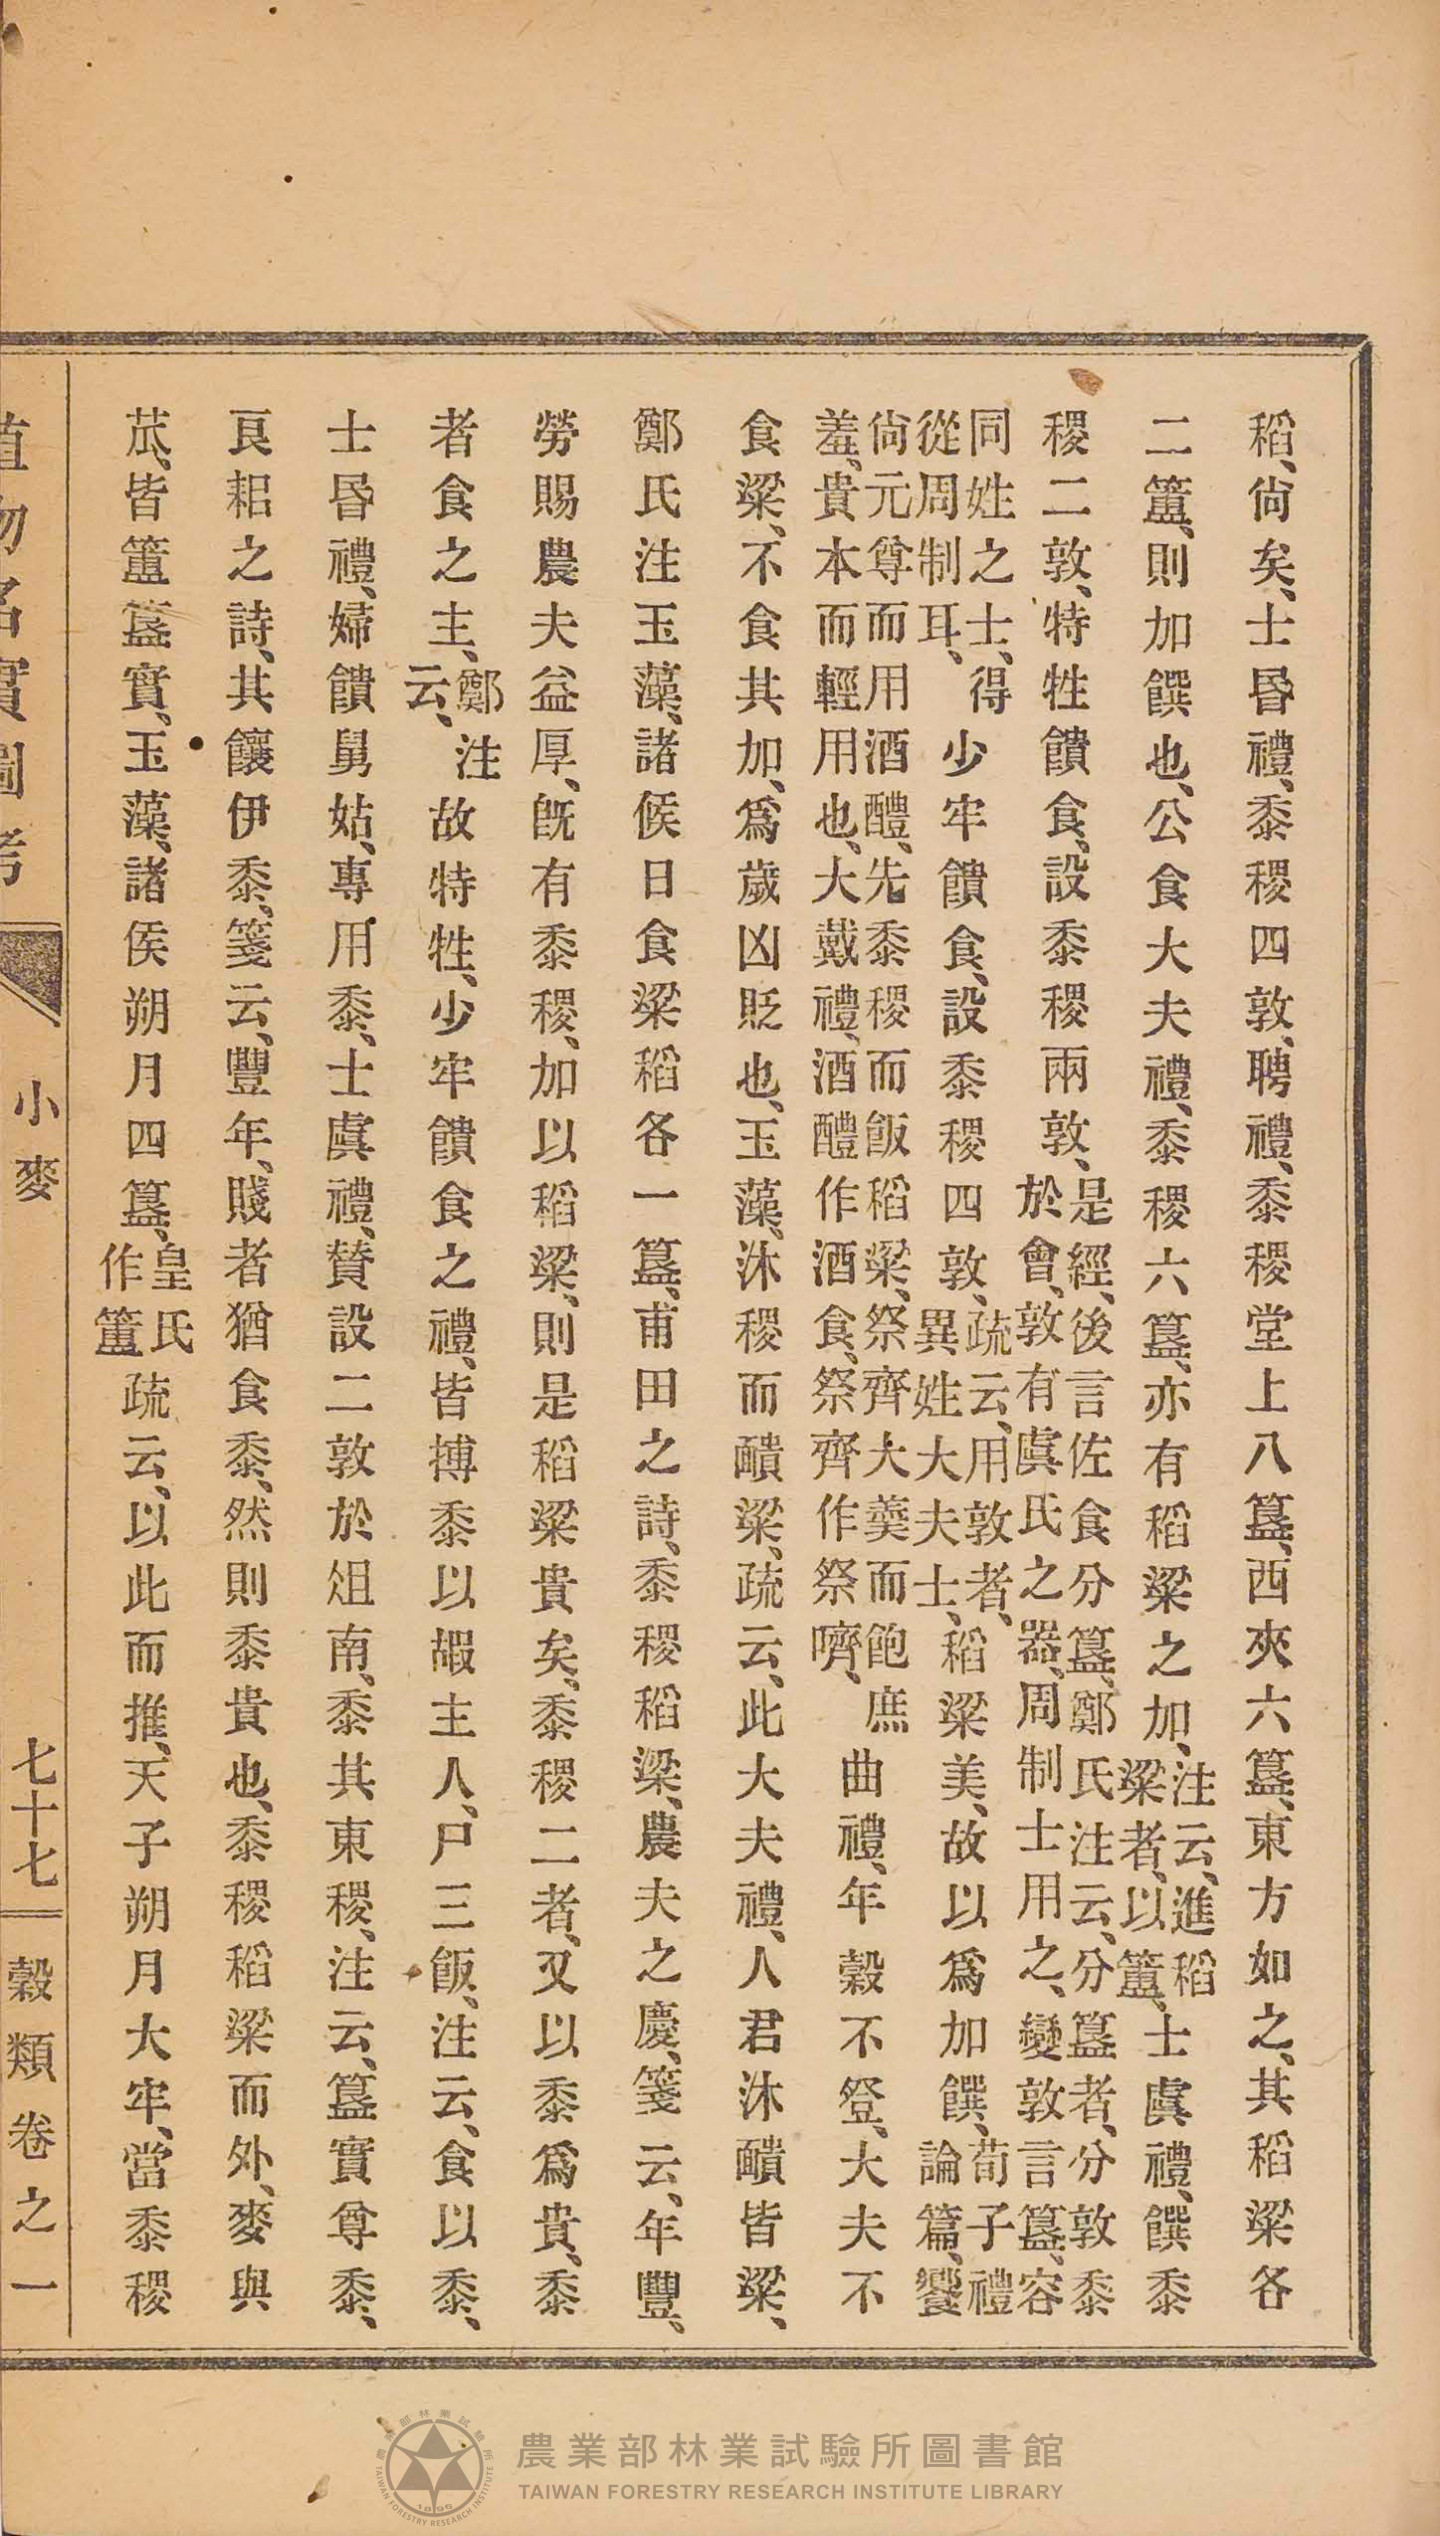 稻、尙矣、士昬禮、黍稷四敦、聘禮、黍稷堂上八簋、西夾六簋、東方如之、其稻粱各
二簠、則加饌也、公食大夫禮、黍稷六簋、亦有稻粱之加、注云、進稻粱者、以簠、士虞禮、饌黍
稷二敦、特牲饋食、設黍稷兩敦、是經、後言佐食分簋、鄭氏注云、分簋者、分敦黍於會、敦有虞氏之器、周制士用之、變敦言簋、容
同姓之士、得從周制耳、少牢饋食、設黍稷四敦、疏云、用敦者、異姓大夫士、稻粱美、故以爲加饌、荀子禮論篇、饗
尙元尊而用酒醴、先黍稷而飯稻粱、祭齊大羹而飽庶羞、貴本而輕用也、大戴禮、酒醴作酒食、祭齊作祭嚌、曲禮、年穀不登、大夫不
食粱、不食其加、爲歲凶貶也、玉藻、沐稷而靧粱、疏云、此大夫禮、人君沐靧皆粱、
鄭氏注玉藻、諸侯日食粱稻各一簋、甫田之詩、黍稷稻粱、農夫之慶、箋云、年豐、
勞賜農夫益厚、旣有黍稷、加以稻粱、則是稻粱貴矣、黍稷二者、又以黍爲貴、黍
者食之主、鄭注云、故特牲、少牢饋食之禮、皆摶黍以嘏主人、尸三飯、注云、食以黍、
士昬禮、婦饋舅姑、專用黍、士虞禮、贊設二敦於俎南、黍其東稷、注云、簋實尊黍、
良耜之詩、其饟伊黍、箋云、豐年、賤者猶食黍、然則黍貴也、黍稷稻粱而外、麥與
苽、皆簠簋實、玉藻、諸侯朔月四簋、皇氏作簠疏云、以此而推、天子朔月大牢、當黍稷
植物名實圖考 小麥 七十七 穀類卷之一
農業部林業試驗所圖書館
TAIWAN FORESTRY RESEARCH INSTITUTE LIBRARY
農業部林業試驗所
TAIWAN FORESTRY RESEARCH INSTITUTE
1896